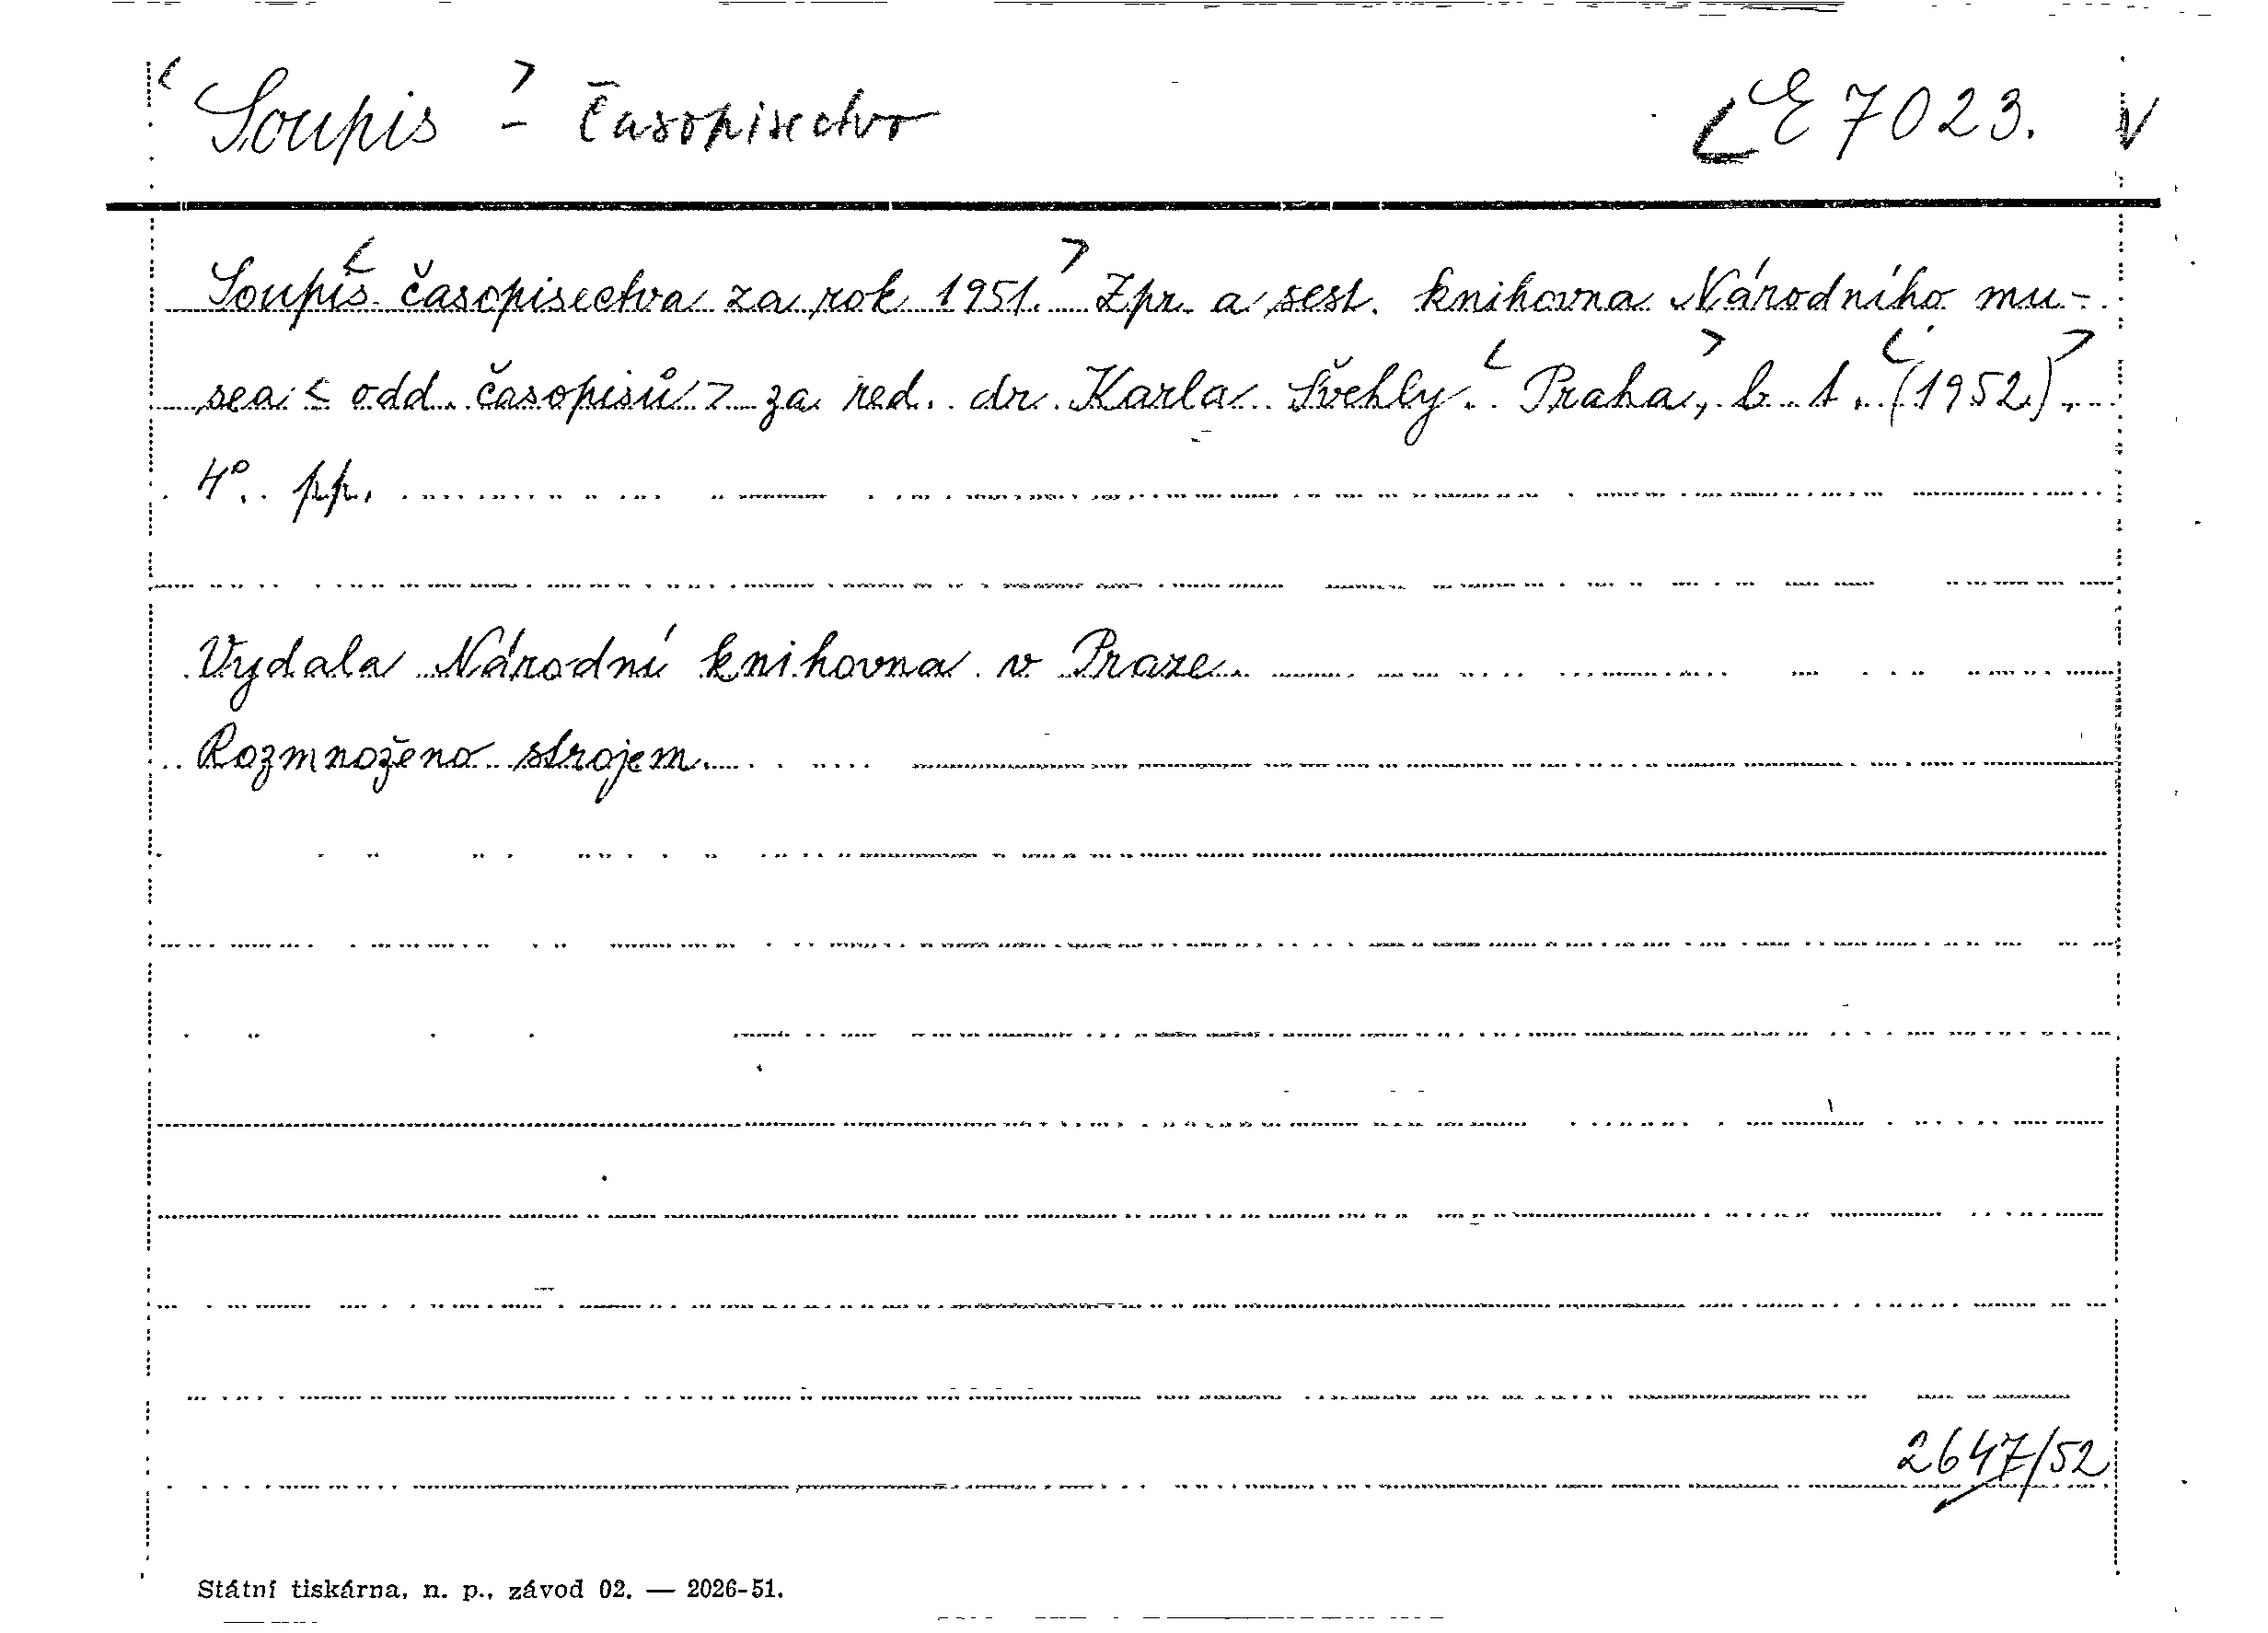 Soupis - časopisectvo E 7023.
Soupis časopisectva za rok 1951. Zpr. a sest. knihovna Národního mu-
sea < odd. časopisů > za red. dr. Karla Švehly. Praha, b. t. (1952),
4°. pp.
Vydala Národní knihovna v Praze.
Rozmnoženo strojem.
2647/52
Státní tiskárna, n. p., závod 02. — 2026-51.